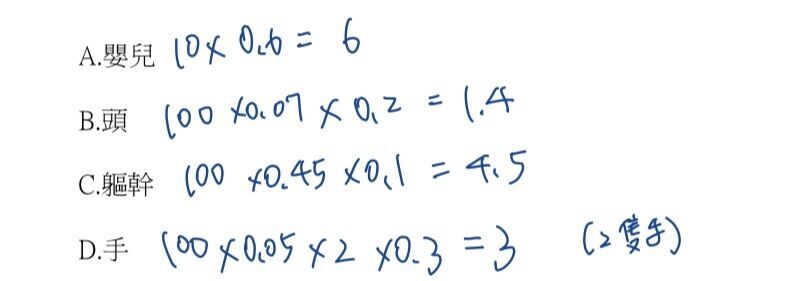 A.嬰兒 10× 0.6 = 6
B.頭 100 ×0.07 × 0.2 = 1.4
C.軀幹 100 ×0.45 ×0.1 = 4.5
D.手 100 ×0.05 × 2 ×0.3 = 3 (2隻手)